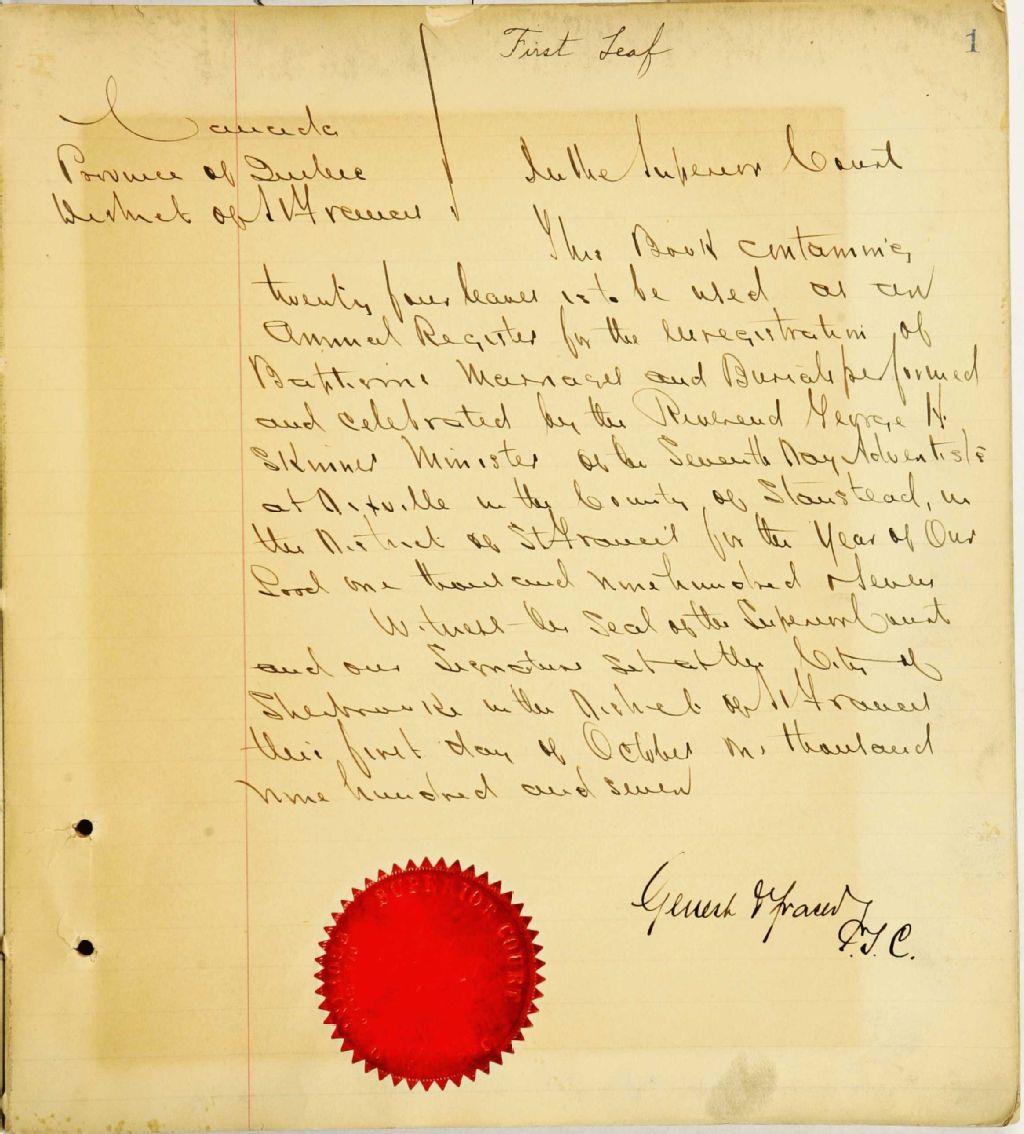 First Leaf
1
Canada
Province of Quebec
District of St Francis
In the Superior Court
This Book containing
twenty four leaves is to be used as an
Annual Register for the enregistration of
Baptisms Marriages and Burials performed
and celebrated by the Reverend George H.
Skinner Minister of the Seventh Day Adventists
at Dixville in the County of Stanstead, in
the District of St Francis for the Year of Our
Lord one thousand nine hundred & seven
Witness the Seal of the Superior Court
and our Signature set at the City of
Sherbrooke in the District of St Francis
this first day of October one thousand
nine hundred and seven
SUPERIOR COURT
Genest & Fraser
P.S.C.